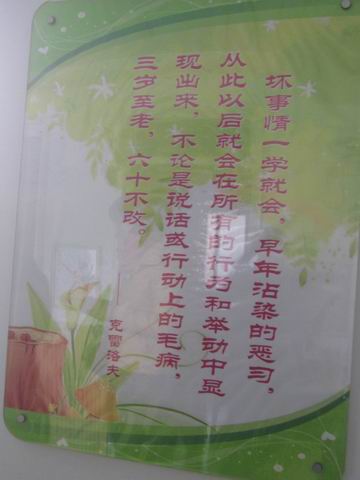 坏事情一学就会，早年沾染的恶习，
从此以后就会在所有的行为和举动中显
现出来，不论是说话或行动上的毛病，
三岁至老，六十不改。
——克雷洛夫